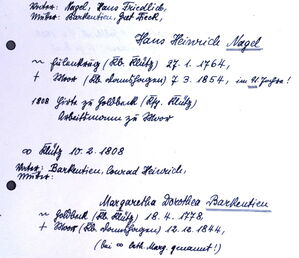 Vater: Nagel, Hans Friedrich,
Mutter: Barkentien, Gret Liesk,
Hans Heinrich Nagel
~ (Kb. Klütz) 27. 1. 1764,
+ Moor (Kb. Damshagen) 7. 3. 1854, im 91. Jahre!
1808 Hirte zu Goldbeck (Ksp. Klütz)
Arbeitsmann zu Moor
∞ Klütz 10. 2. 1808
Vater: Barkentien, Conrad Heinrich,
Mutter:
Margaretha Dorothea Barkentien
~ Goldbeck (Kb. Klütz) 18. 4. 1778,
+ Moor (Kb. Damshagen) 12. 12. 1844,
(bei ∞ Cath. Marg. genannt!)